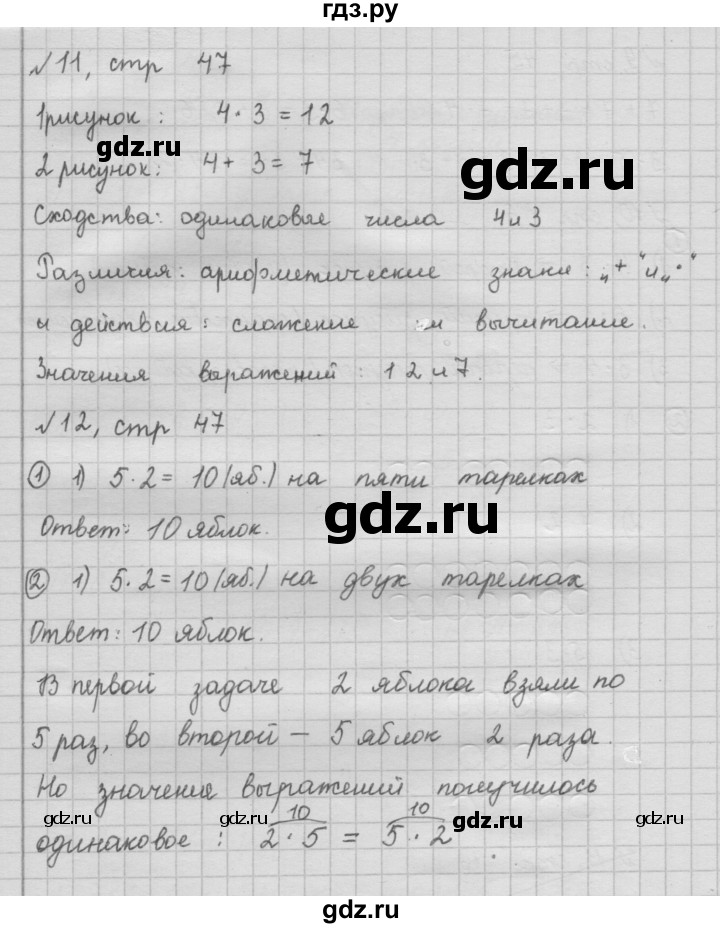 гдз.ру
№11, стр 47
1рисунок: 4·3=12
gdz.ru
2 рисунок: 4+3=7
gdz.ru
Сходства: одинаковые числа 4и3
Различия: арифметические знаки: „+“ и „·“
и действия: сложение и вычитание.
Значения выражений: 12 и 7.
№12, стр 47
① 1) 5·2=10(яб.) на пяти тарелках
gdz.ru
Ответ: 10 яблок.
② 1) 5·2=10(яб.) на двух тарелках
Ответ: 10 яблок.
В первой задаче 2 яблока взяли по
5 раз, во второй – 5 яблок 2 раза.
Но значение выражений получилось
gdz.ru 10 gdz.ru 10 gdz.ru gdz.ru
одинаковое: 2·5 = 5·2
gdz.ru